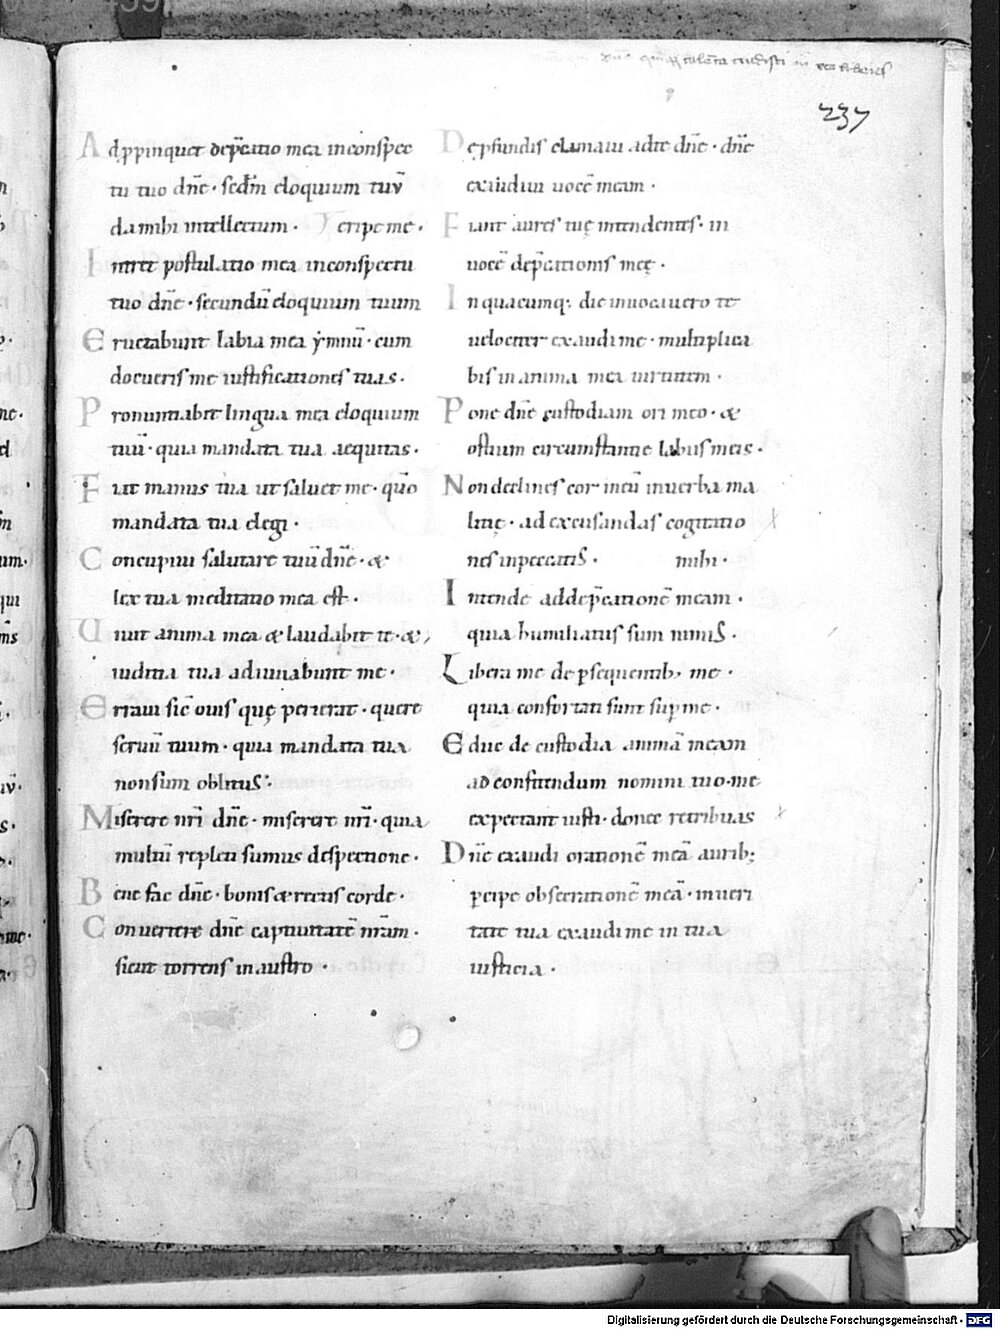 quinq talenta tradidisti
237
Adp̄pinquet dep̄catio mea inconspec
tu tuo dn̄e · scd̄m eloquium tuū
da mihi intellectum · eripe me ·
Intret postulatio mea inconspectu
tuo dn̄e · secundū eloquium tuum
Eructabunt labia mea ẏmnū · cum
docueris me iustificationes tuas ·
Pronuntiabit lingua mea eloquium
tuū · quia mandata tua aequitas ·
Fiat manus tua ut saluet me · quō
mandata tua elegi ·
Concupiui salutare tuū dn̄e · &
lex tua meditatio mea est ·
Uiuit anima mea & laudabit te · &
iudicia tua adiuuabunt me ·
Erraui sic̄ ouis quę perierat · quere
seruū tuum · quia mandata tua
non sum oblitus ·
Miserere nr̄i dn̄e · miserere nr̄i · quia
multū repleti sumus despectione ·
Bene fac dn̄e · bonis & rectis corde ·
Conuertere dn̄e captiuitatē nr̄am ·
sicut torrens in austro ·
Dep̄fundis clamaui adte dn̄e · dn̄e
exaudiui uocē meam ·
Fiant aures tuę intendentes · in
uocē dep̄cationis meę ·
Inquacumq; die inuocauero te
uelociter exaudi me · multiplica
bis in anima mea uirtutem ·
Pone dn̄e custodiam ori meo · &
ostium circumstantie labiis meis ·
Non declines cor meū in uerba ma
litię · ad excusandas cogitatio
nes inpeccatis · mihi ·
Intende addep̄cationē meam ·
quia humiliatus sum nimis ·
Libera me de p̄sequentib; me ·
quia confortati sunt sup̄ me ·
Educ de custodia animā meam
ad confitendum nomini tuo · me
expectant iusti · donec retribuas
Dn̄e exaudi orationē meā aurib;
p̄cipe obsecrationē meā · in ueri
tate tua exaudi me in tua
iusticia ·
Digitalisierung gefördert durch die Deutsche Forschungsgemeinschaft - DFG